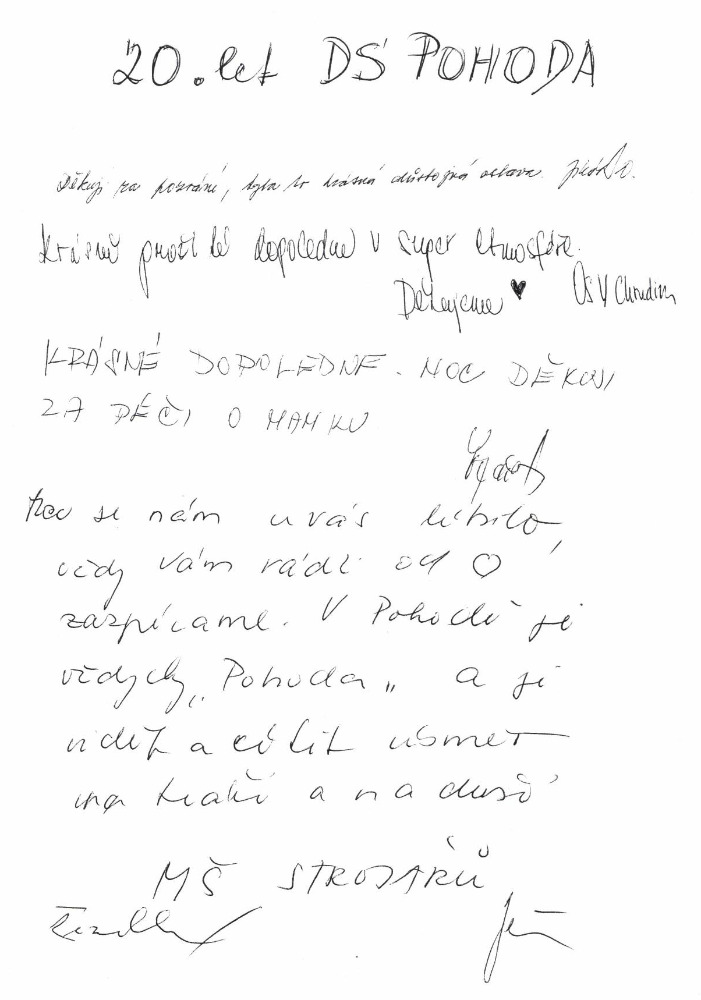 20. let DS POHODA
Děkuji za pozvání, byla to krásná důstojná oslava
Krásně prožité dopoledne v super atmosféře.
Děkujeme ♥ OS V Chrudim
KRÁSNÉ DOPOLEDNE. MOC DĚKUJI
ZA PÉČI O MAMKU
Moc se nám u vás líbilo,
vždy vám rádi od ♡
zazpíváme. V Pohodě je
vždycky „Pohoda" a je
vidět a cítit úsměv
na tváři a na duši
MŠ STROJAŘŮ